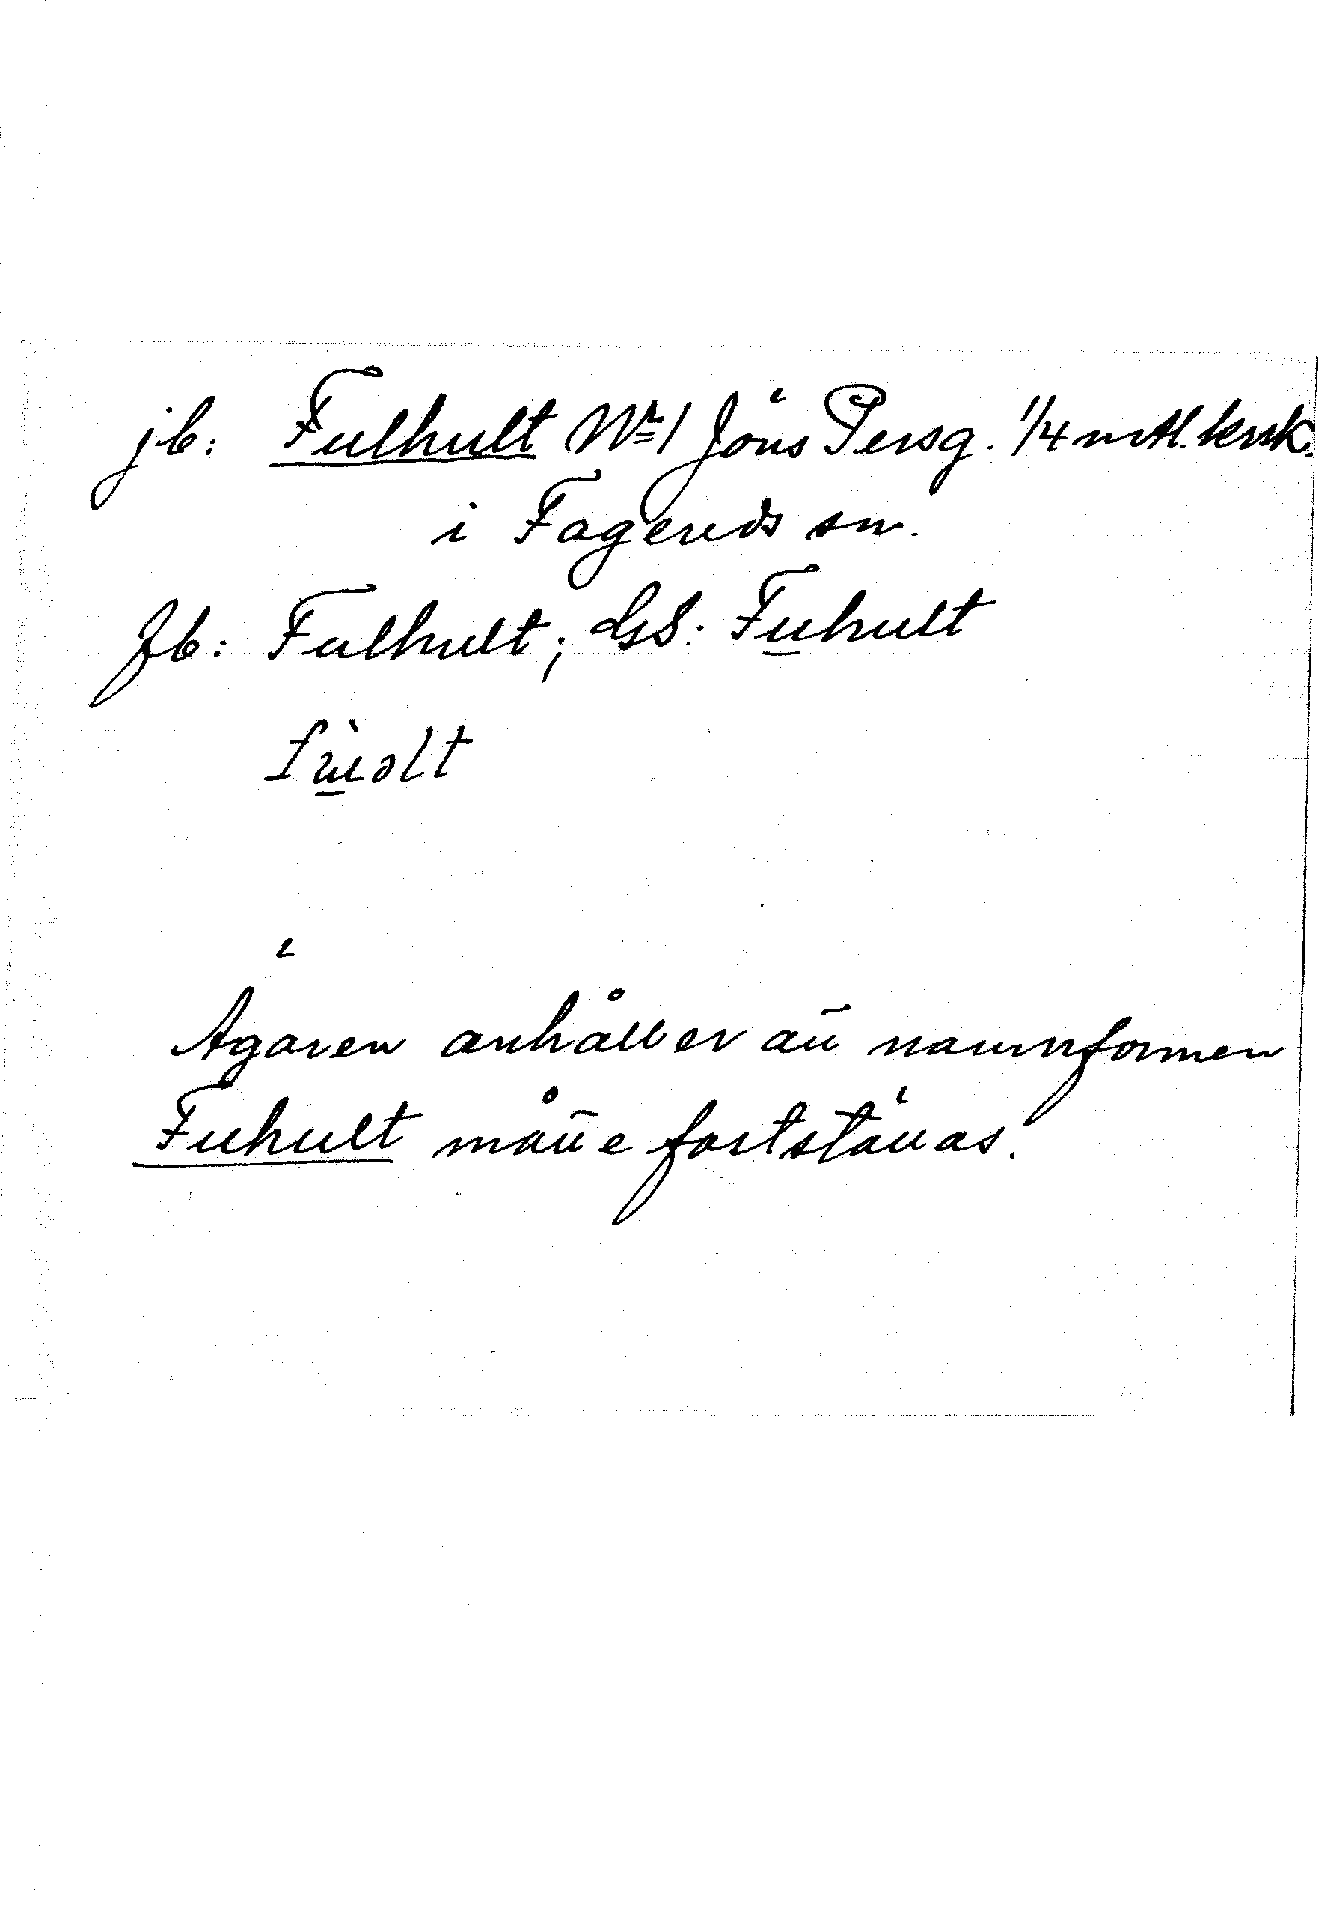 jb: Fulhult No 1 Jöns Persg. 1/4 mtl. krsk.
i Fagereds sn.
Jb: Fulhult; GS: Fuhult
Ägaren anhåller att namnformen
Fuhult måtte fortstå